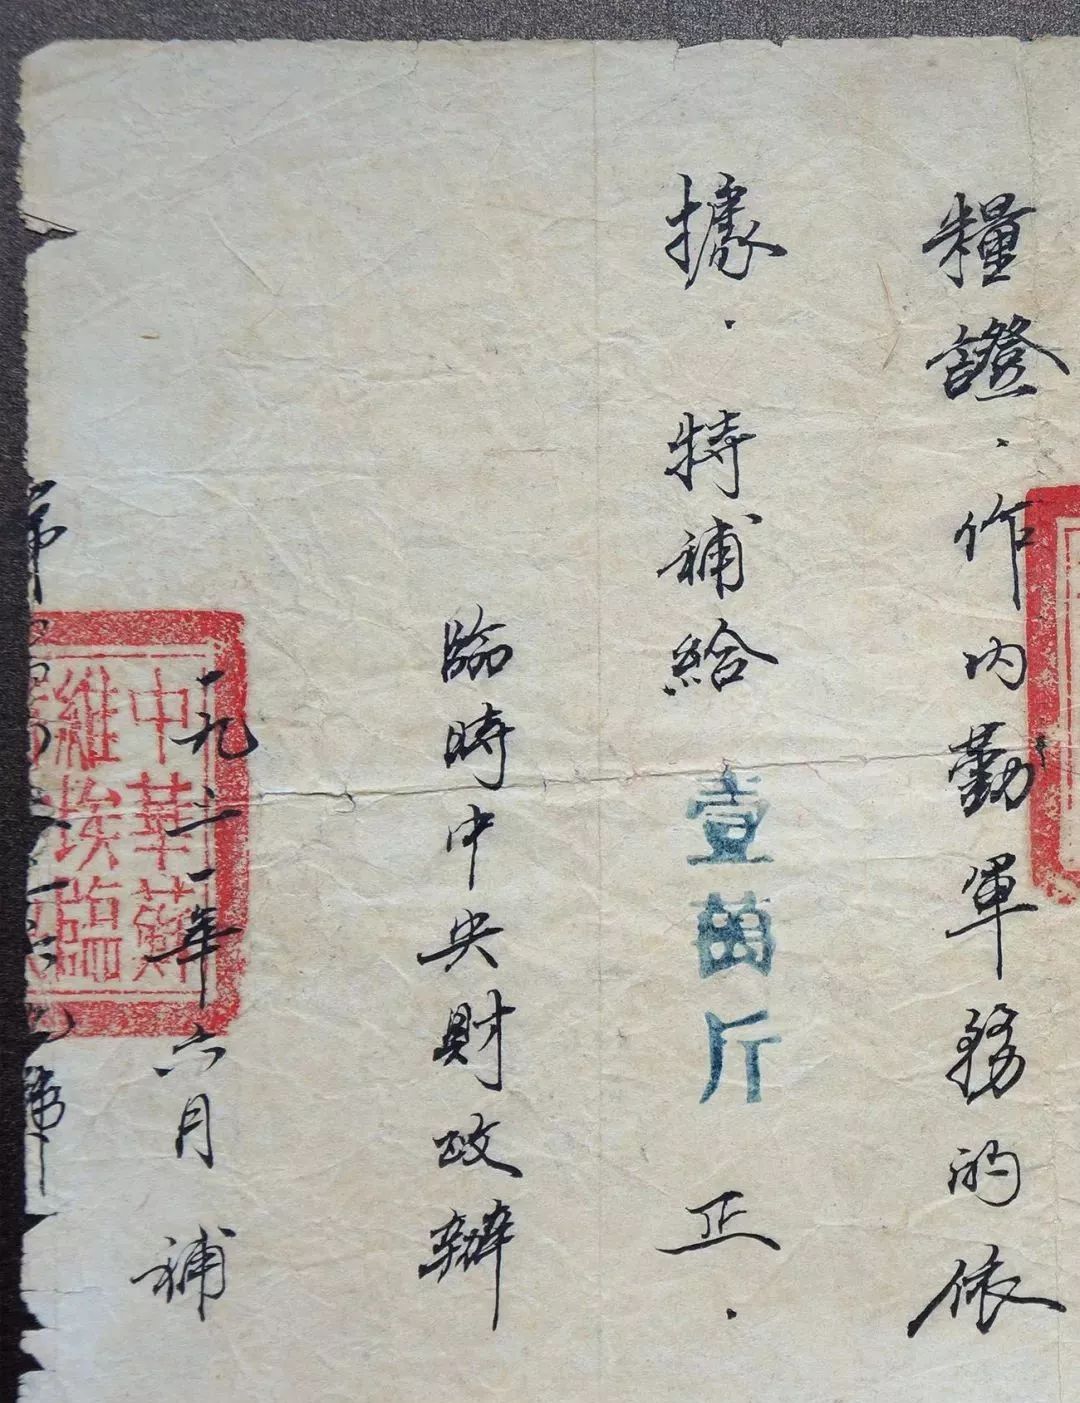 糧證．作內勤軍務的依
據．特補給 壹萬斤 正．
臨時中央財政辦
一九三一年六月 補
中華蘇
維埃臨